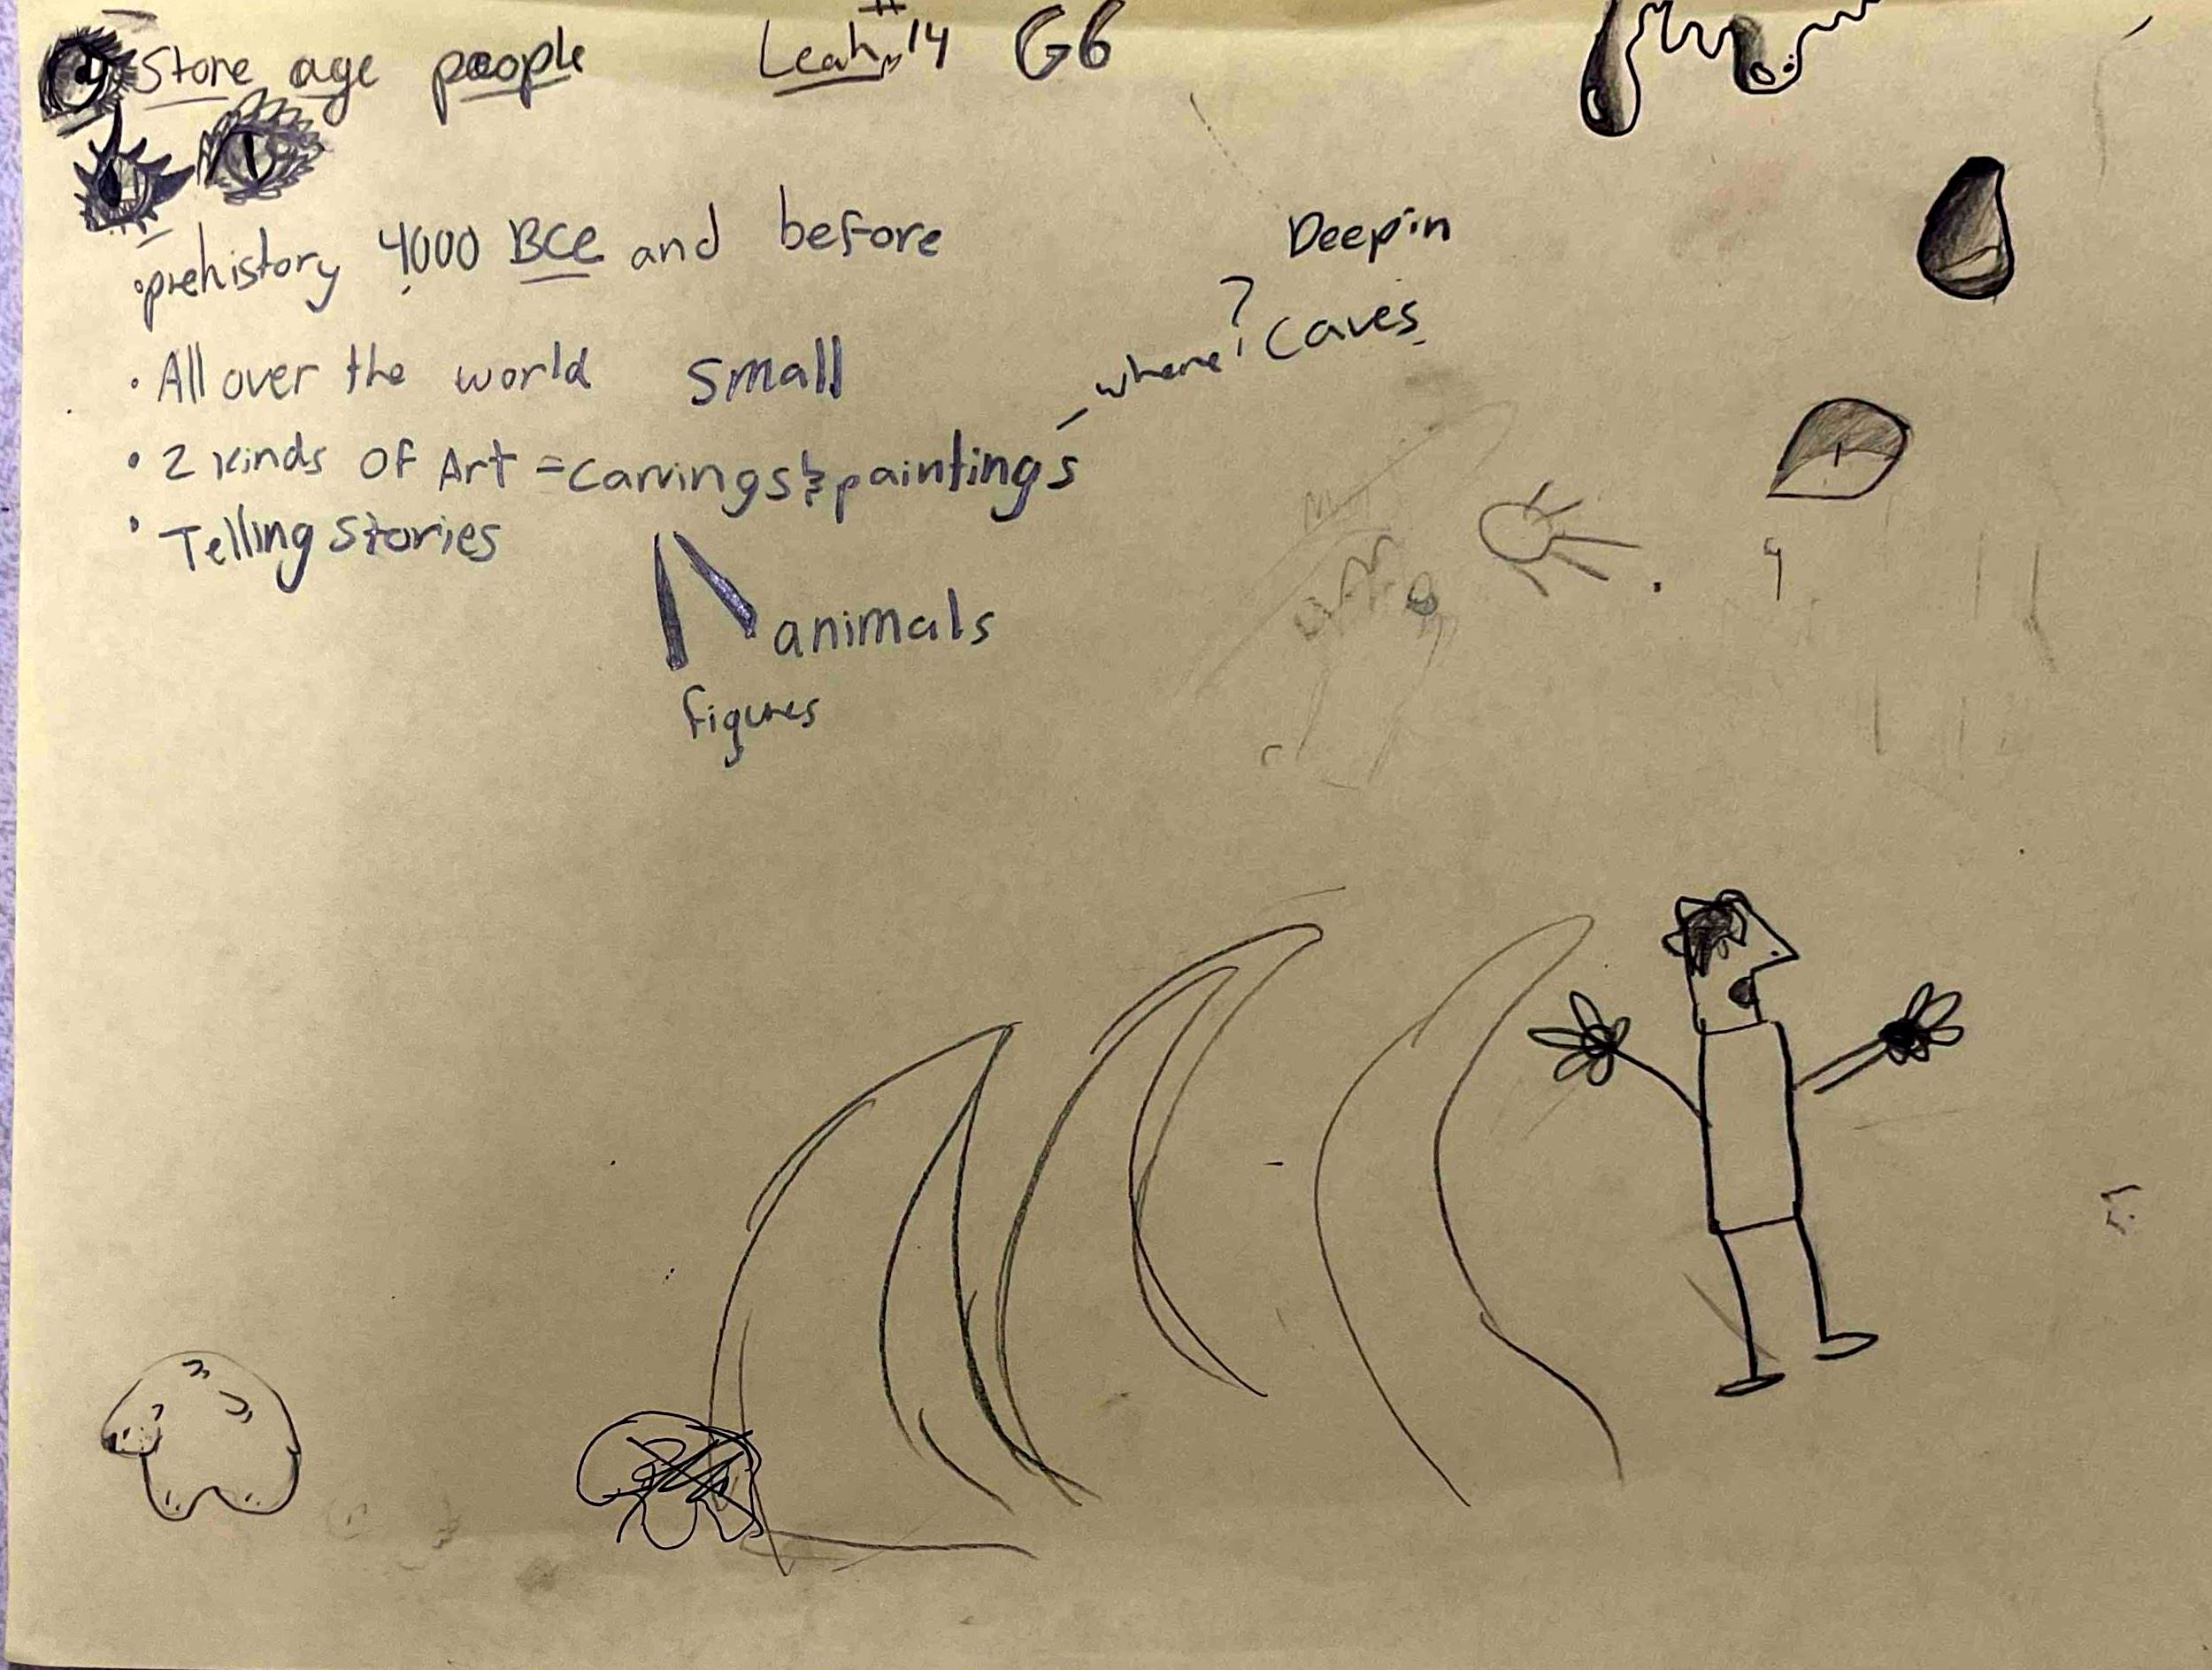 Stone age people Leah #14 G6
•prehistory 4000 BCE and before
• All over the world small
• 2 kinds of Art = carvings & paintings
where? Deep in
caves
• Telling stories
animals
figures